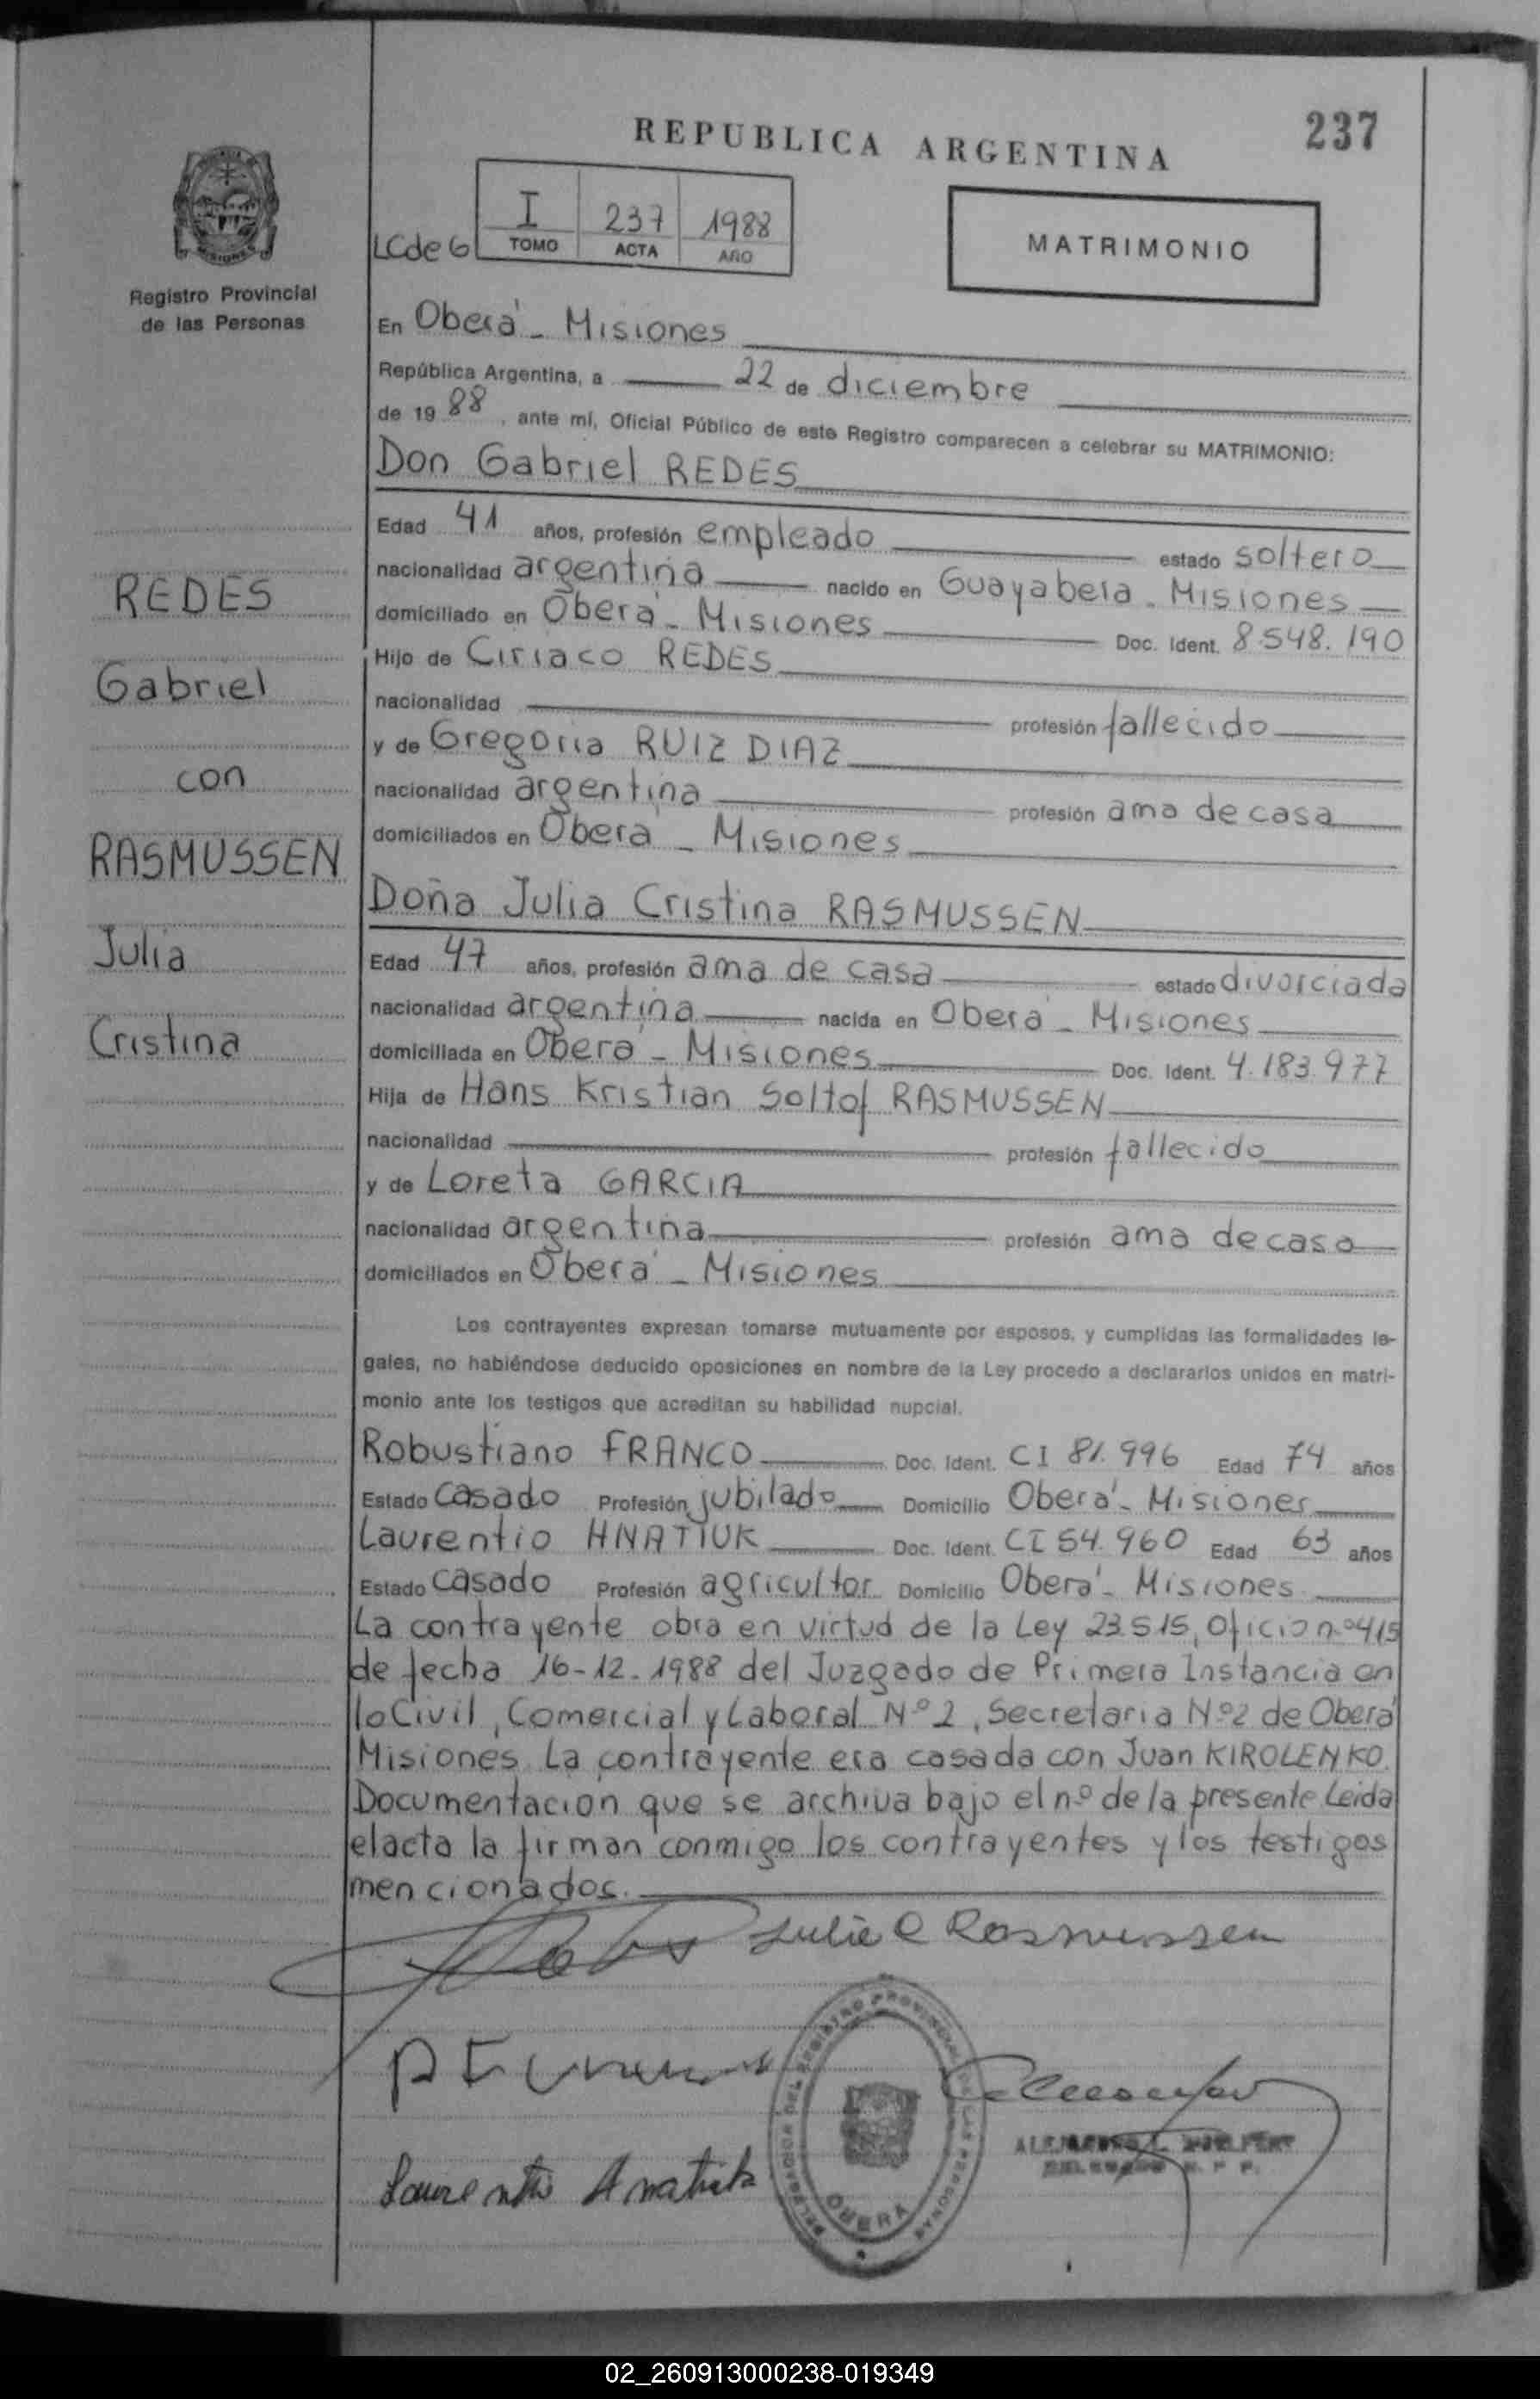 REPUBLICA ARGENTINA
237
Registro Provincial
de las Personas
LCde G
I 237 1988
TOMO ACTA AÑO
MATRIMONIO
En Oberá - Misiones
República Argentina, a 22 de diciembre
de 19 88, ante mí, Oficial Público de este Registro comparecen a celebrar su MATRIMONIO:
Don Gabriel REDES
Edad 41 años, profesión empleado estado soltero
nacionalidad argentina nacido en Guayabera - Misiones
domiciliado en Oberá - Misiones Doc. Ident. 8.548.190
Hijo de Ciriaco REDES
nacionalidad profesión fallecido
y de Gregoria RUIZ DIAZ
nacionalidad argentina profesión ama de casa
domiciliados en Oberá - Misiones
Doña Julia Cristina RASMUSSEN
Edad 47 años, profesión ama de casa estado divorciada
nacionalidad argentina nacida en Oberá - Misiones
domiciliada en Oberá - Misiones Doc. Ident. 4.183.977
Hija de Hans Kristian Soltof RASMUSSEN
nacionalidad profesión fallecido
y de Loreta GARCIA
nacionalidad argentina profesión ama de casa
domiciliados en Oberá - Misiones
REDES
Gabriel
con
RASMUSSEN
Julia
Cristina
Los contrayentes expresan tomarse mutuamente por esposos, y cumplidas las formalidades le-
gales, no habiéndose deducido oposiciones en nombre de la Ley procedo a declararlos unidos en matri-
monio ante los testigos que acreditan su habilidad nupcial.
Robustiano FRANCO Doc. Ident. CI 81.996 Edad 74 años
Estado casado Profesión jubilado Domicilio Oberá - Misiones
Laurentio HNATIUK Doc. Ident. CI 54.960 Edad 63 años
Estado casado Profesión agricultor Domicilio Oberá - Misiones
La contrayente obra en virtud de la Ley 23.515, Oficio nº 415
de fecha 16-12-1988 del Juzgado de Primera Instancia en
lo Civil, Comercial y Laboral Nº 2, Secretaria Nº 2 de Oberá
Misiones. La contrayente era casada con Juan KIROLENKO.
Documentacion que se archiva bajo el nº de la presente Leida
el acta la firman conmigo los contrayentes y los testigos
mencionados.
Julia C Rasmussen
DELEGACION DEL REGISTRO PROVINCIAL DE LAS PERSONAS
OBERÁ
02_260913000238-019349